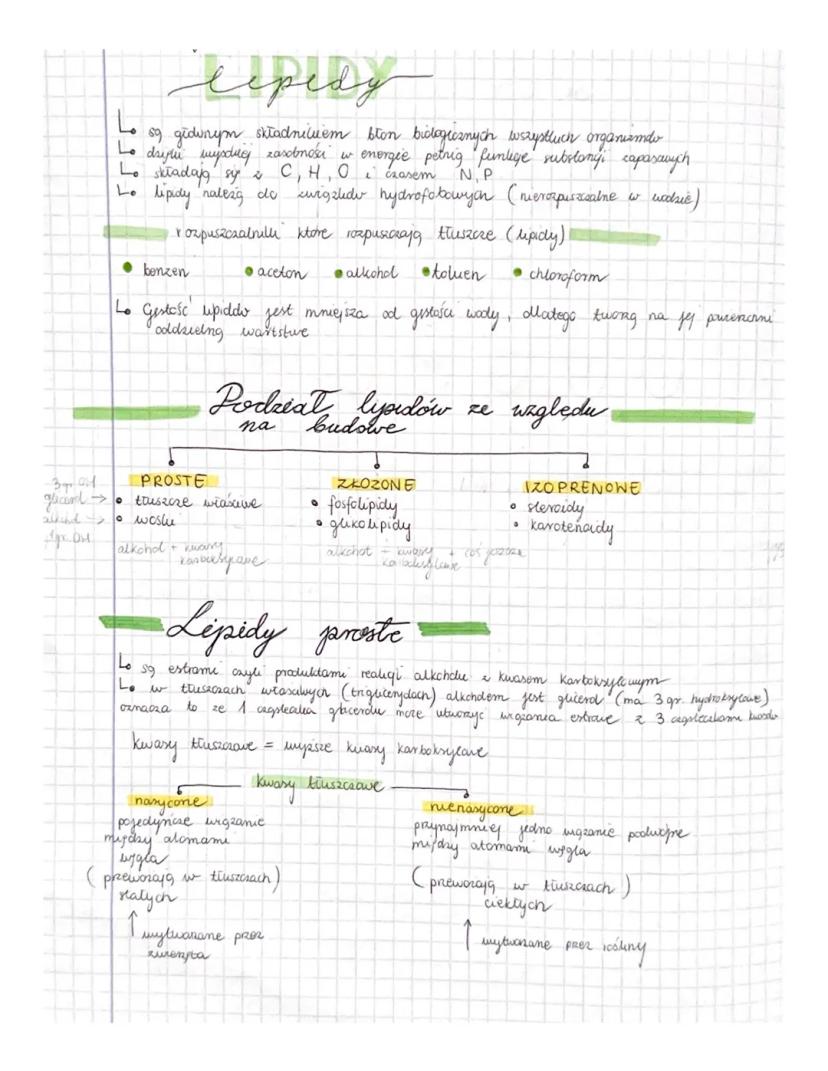 LIPIDY
Lipidy
są głównym składnikiem błon biologicznych wszystkich organizmów
dzięki wysokiej zasobności w energię pełnią funkcję substancji zapasowych
składają się z C, H, O i czasem N, P
lipidy należą do związków hydrofobowych (nierozpuszczalne w wodzie)
rozpuszczalniki które rozpuszczają tłuszcze (lipidy)
• benzen • aceton • alkohol • toluen • chloroform
Gęstość lipidów jest mniejsza od gęstości wody, dlatego tworzą na jej powierzchni
oddzielną warstwę
Podział lipidów ze względu
na budowę
PROSTE ZŁOŻONE IZOPRENOWE
3 gr. OH
glicerol → • tłuszcze właściwe • fosfolipidy • steroidy
alkohol → • woski • glikolipidy • karotenoidy
1 gr. OH
alkohol + kwasy alkohol + kwasy + coś jeszcze
karboksylowe karboksylowe
Lipidy proste
są estrami czyli produktami reakcji alkoholu z kwasem karboksylowym
w tłuszczach właściwych (trójglicerydach) alkoholem jest glicerol (ma 3 gr. hydroksylowe)
oznacza to że 1 cząsteczka glicerolu może utworzyć wiązania estrowe z 3 cząsteczkami kwasów
kwasy tłuszczowe = wyższe kwasy karboksylowe
kwasy tłuszczowe
nasycone nienasycone
pojedyncze wiązanie przynajmniej jedno wiązanie podwójne
między atomami między atomami węgla
węgla
(przeważają w tłuszczach) (przeważają w tłuszczach)
stałych ciekłych
↑ wytwarzane przez ↑ wytwarzane przez rośliny
zwierzęta